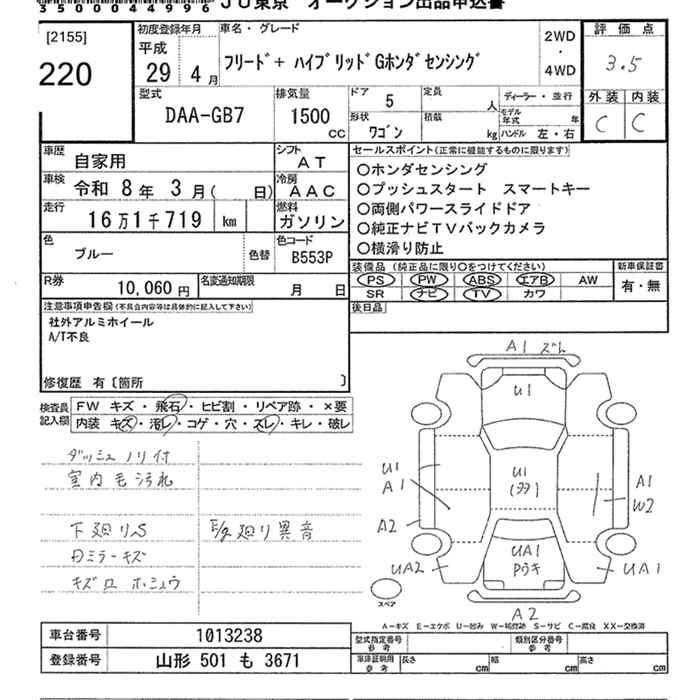 35000 44996 JU東京 オークション出品申込書
[2155]
220
初度登録年月
平成
29年 4月
車名・グレード
フリード+ ハイブリッドGホンダセンシング
2WD
・
4WD
評価点
3.5
外装 内装
C C
型式
DAA-GB7
排気量
1500
CC
ドア 5
形状 ワゴン
定員 人
積載 kg
ディーラー・並行
モデル年式 年
ハンドル 左・右
車歴 自家用
シフト AT
車検 令和 8年 3月( 日)
冷房 AAC
走行 16万1千719 km
燃料 ガソリン
色 ブルー 色替
色コード B553P
R券 10,060円
名変通知期限 月 日
セールスポイント(正常に機能するものに限ります)
○ホンダセンシング
○プッシュスタート スマートキー
○両側パワースライドドア
○純正ナビTVバックカメラ
○横滑り防止
装備品(純正品に限り○をつけてください)
PS PW ABS エアB AW
SR ナビ TV カワ
新車保証書
有・無
後日品
注意事項申告欄(不具合内容等は具体的に記入して下さい)
社外アルミホイール
A/T不良
修復歴 有〔箇所 〕
検査員記入欄
FW キズ・飛石・ヒビ割・リペア跡・×要
内装 キズ・濁レ・コゲ・穴・スレ・キレ・破レ
ダッシュノリ付
室内毛汚れ
下廻りS
E/g廻り異音
日ミラーキズ
キズロ ホシュウ
A1 ズレ
U1
U1
A1
U1
A1
W2
A2
UA2
UA1
Pウキ
UA1
A2
スペア
A-キズ E-エクボ U-凹み W-補修跡 S-サビ C-腐食 XX-交換済
車台番号 1013238
登録番号 山形 501 も 3671
型式指定番号 参考
類別区分番号 参考
車庫証明用 参考
長さ cm
幅 cm
高さ cm